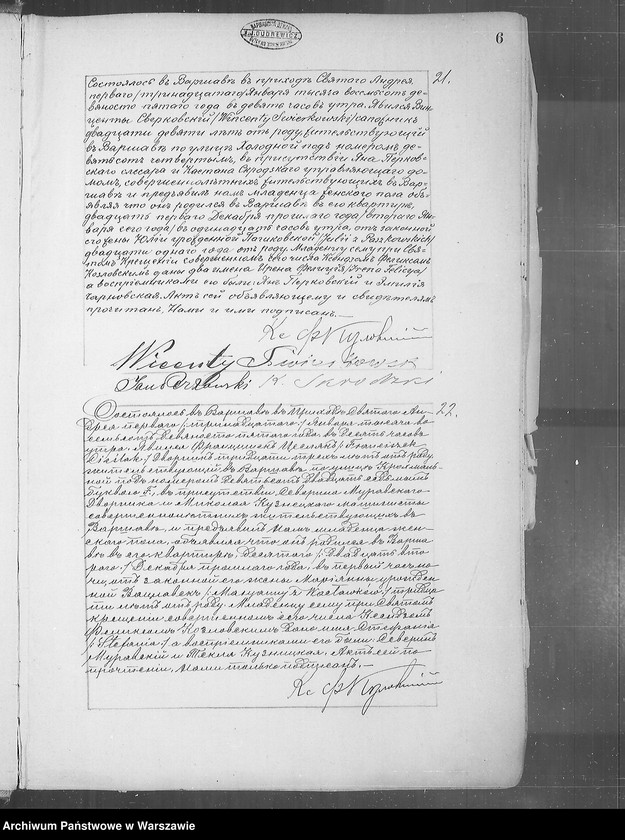 6
21.
Состоялось въ Варшавѣ въ приходѣ Святаго Андрея
перваго /тринадцатаго/ Января тысяча восемьсотъ де-
вяносто пятаго года въ девять часовъ утра. Явился Вин-
центы Сверковскій /Wincenty Świerkowski/ сапожникъ
двадцати девяти лѣтъ отъ роду, жительствующій
въ Варшавѣ по улицѣ Холодной подъ номеромъ де-
вятьсотъ четвертымъ, въ присутствіи Яна Перков-
скаго слесаря и Каетана Скродзкаго управляющаго до-
момъ, совершеннолѣтнихъ, жительствующихъ въ Вар-
шавѣ и предъявилъ намъ младенца женскаго пола объ-
являя что онъ родился въ Варшавѣ въ его квартирѣ,
двадцать перваго Декабря прошлаго года /втораго Ян-
варя сего года/ въ одинадцать часовъ утра, отъ законной
его жены Юліи урожденной
двадцати одного года отъ роду. Младенцу сему при Свя-
томъ Крещеніи совершенномъ сего числа Ксендзомъ Феликсомъ
Козловскимъ даны два имена Ирена Фелиція /Irena Felicya/
а воспріемниками его были: Янъ Перковскій и Эмилія
Чарновская. Актъ сей объявляющему и свидѣтелямъ
прочитанъ, Нами и ими подписанъ.—
Кс Ф Козловскій
Wicenty
Jan K. Skrodzki
22.
Состоялось въ Варшавѣ въ Приходѣ Святаго Ан-
дрея перваго /:тринадцатаго:/ Января тысяча во-
семьсотъ девяносто пятаго года, въ десять часовъ
утра. Явился Францишекъ Цеслякъ /:Franciszek
Cieślak:/ дворникъ тридцати трехъ лѣтъ отъ роду,
жительствующій въ Варшавѣ по улицѣ Крохмаль-
ной подъ номеромъ девятьсотъ двадцать седьмымъ
буквою F, въ присутствіи Северина Муравскаго
дворника и Николая Кузнецкаго машиниста
совершеннолѣтнихъ жительствующихъ въ
Варшавѣ, и предъявилъ Намъ младенца жен-
скаго пола, объявляя что онъ родился въ Варша-
вѣ въ его квартирѣ, десятаго /:двадцать вто-
раго:/ Декабря прошлаго года, въ первый часъ но-
чи, отъ законной его жены Маріянны урожден-
ной тридца-
ти лѣтъ отъ роду. Младенцу сему при Святомъ
крещеніи совершенномъ сего числа Ксендзомъ
Феликсомъ Козловскимъ дано имя Стефанія
/:Stefania:/ а воспріемниками его были: Северинъ
Муравскій и Текля Кузницкая. Актъ сей по
прочтеніи, Нами только подписанъ.—
Кс Ф Козловскій
Archiwum Państwowe w Warszawie